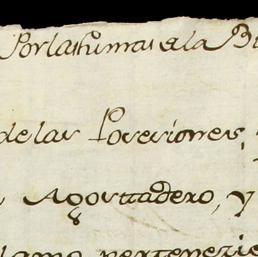 Por las sumas a la B
delas Posesiones,
Agostadero, y
lamo pertenezie